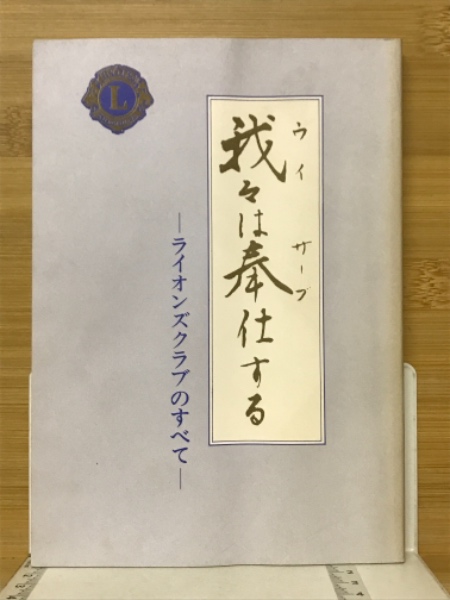 我々は奉仕する
ウイ サーブ
―ライオンズクラブのすべて―
L